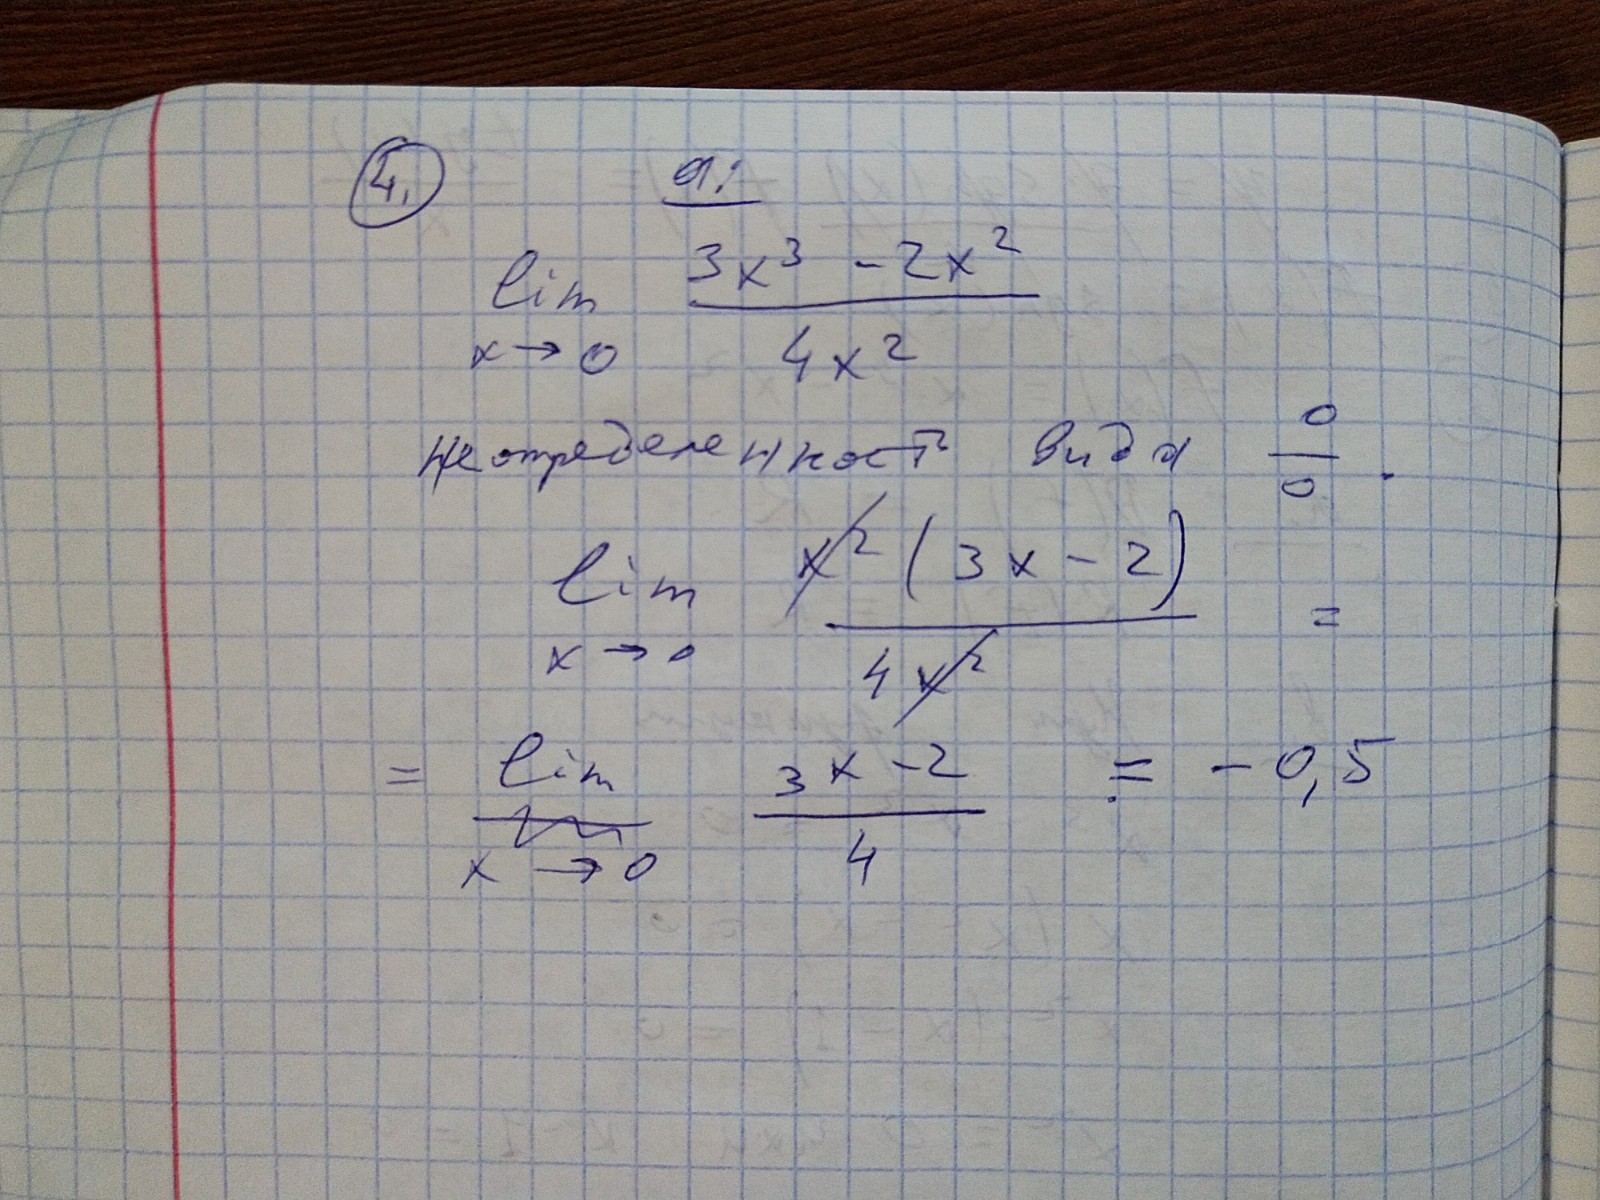 4. a:
lim x→0 (3x³ - 2x²) / (4x²)
неопределенность вида 0/0.
lim x→0 x²(3x - 2) / (4x²) =
= lim x→0 (3x - 2) / 4 = - 0,5